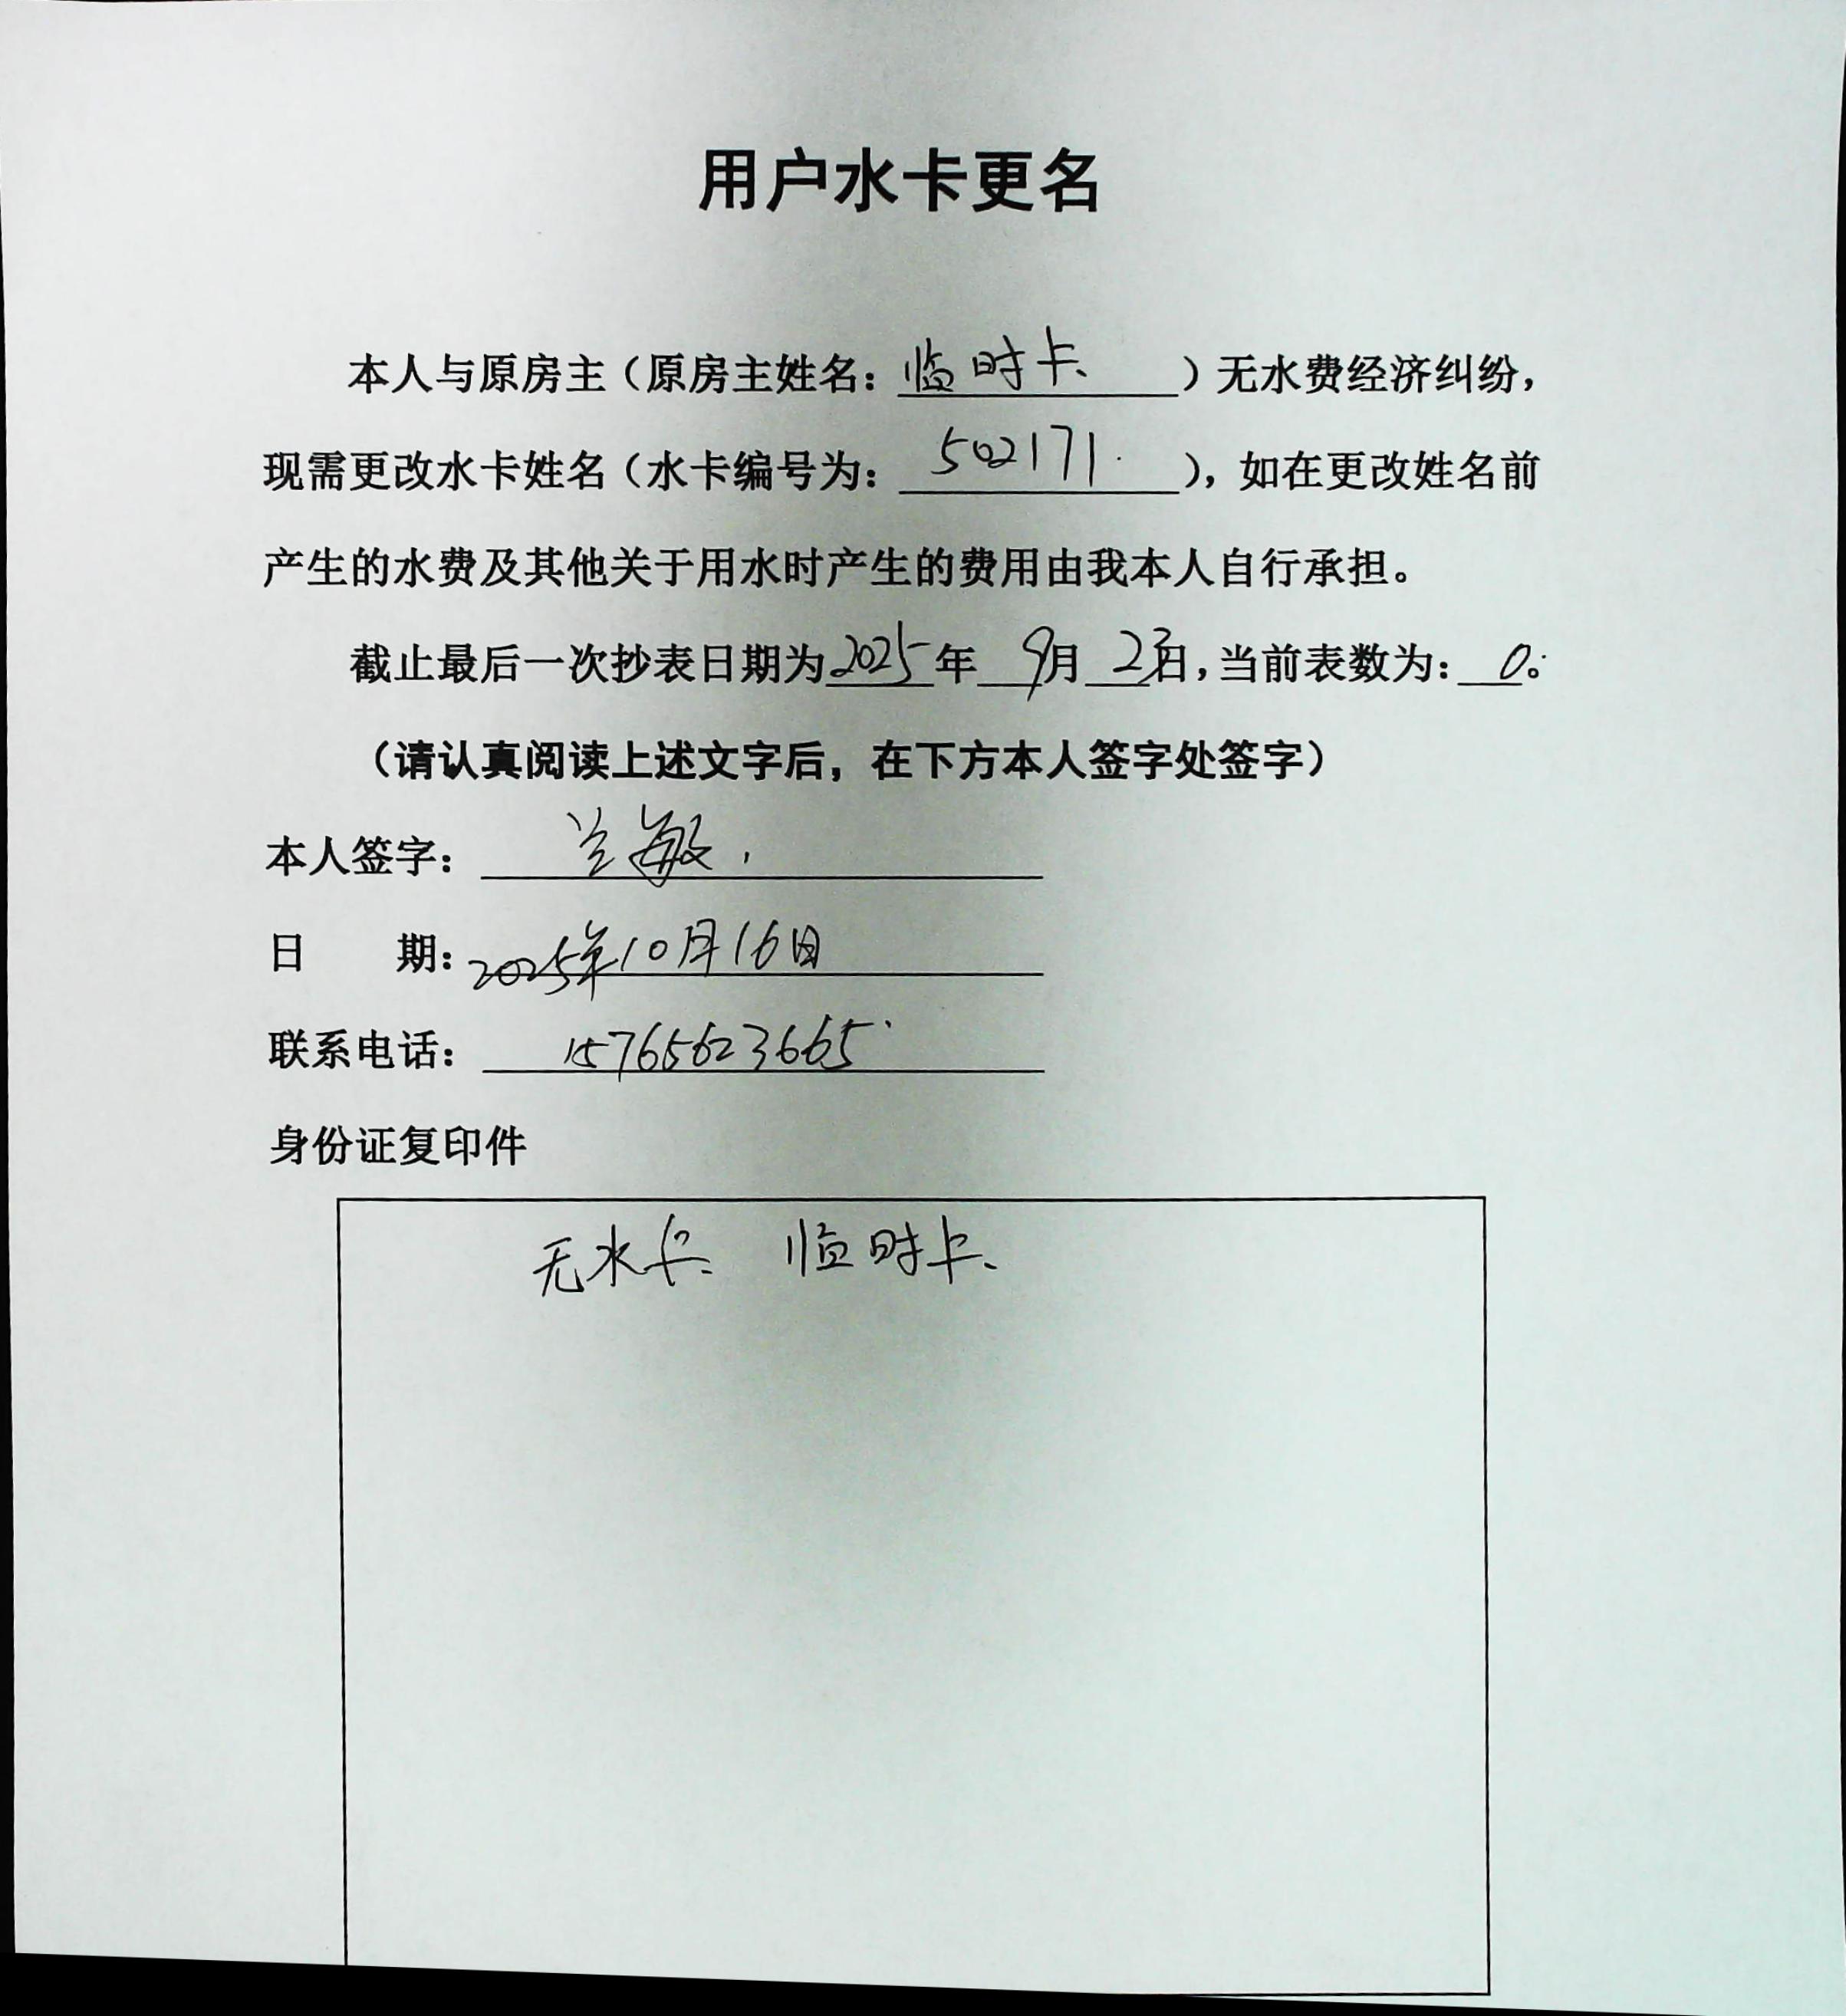 用户水卡更名
本人与原房主（原房主姓名：临时卡）无水费经济纠纷，
现需更改水卡姓名（水卡编号为：502171），如在更改姓名前
产生的水费及其他关于用水时产生的费用由我本人自行承担。
截止最后一次抄表日期为2025年9月23日，当前表数为：0。
（请认真阅读上述文字后，在下方本人签字处签字）
本人签字：兰敏
日　　期：2025年10月16日
联系电话：15765623665
身份证复印件
无水卡、临时卡、